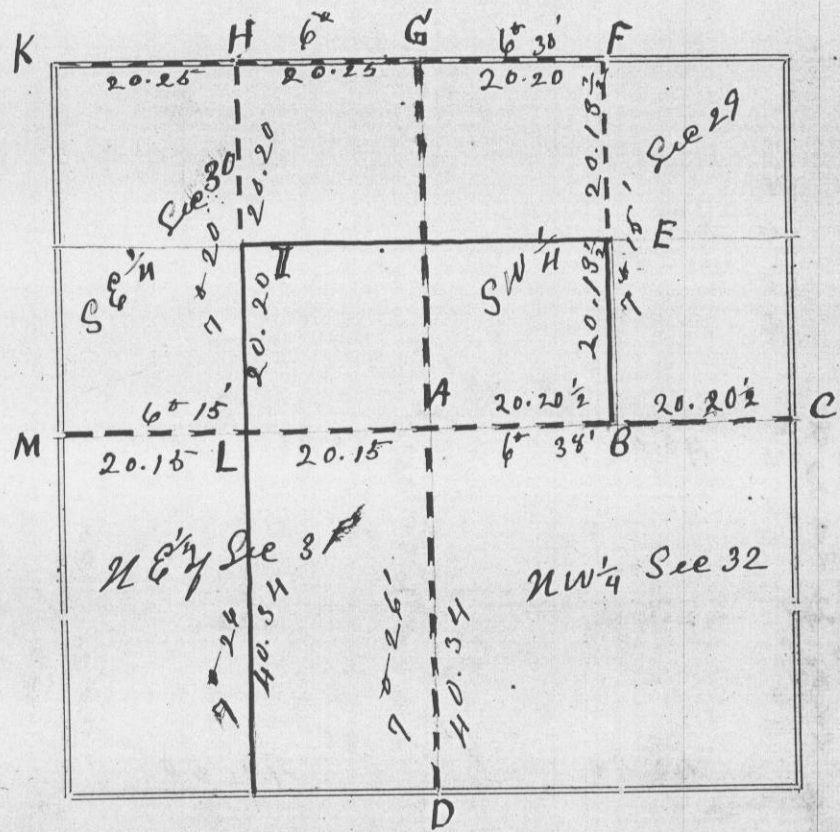 K H 6° G 6° 30' F
20.25 20.25 20.20
20.18½
Sec 29
Sec 30
20.20
7° 20'
I
E
S E ¼
S W ¼
20.20
20.18½
7° 15'
A
6° 15' 20.20½ 20.20½ C
M 20.15 L 20.15 6° 38' B
N E ¼ of Sec 31
N W ¼ Sec 32
7° 24
40.34
7° 26'
40.34
D